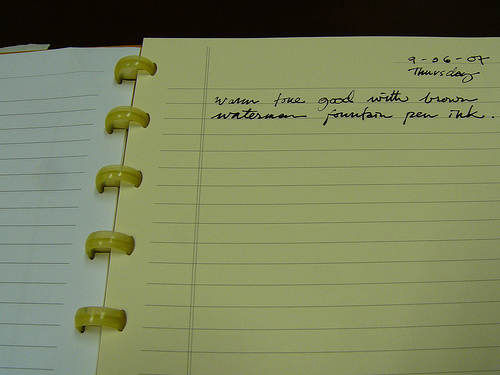 9-06-07
Thursday
warm tone good with brown
waterman fountain pen ink.